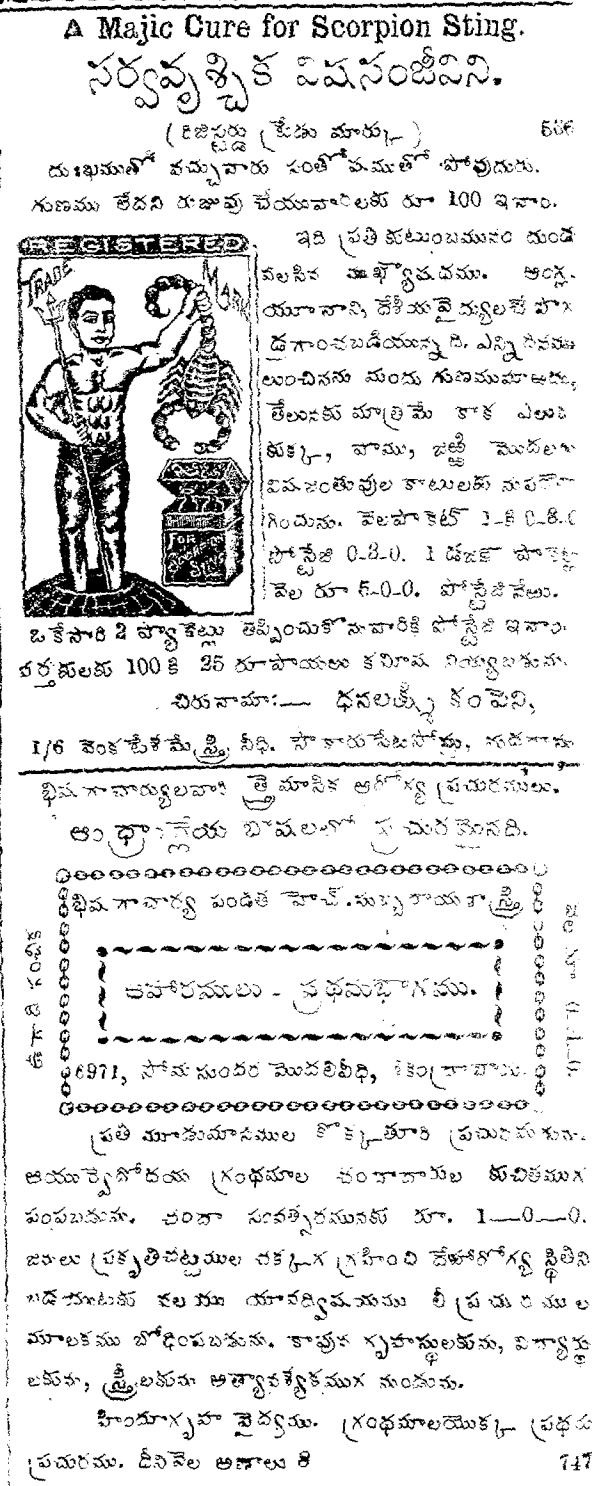 A Majic Cure for Scorpion Sting.
సర్వవృశ్చిక విషసంజీవిని.
(రిజిస్టర్డు ట్రేడు మార్కు)
దుఃఖముతో వచ్చువారు సంతోషముతో పోవుదురు.
గుణము లేదని రుజువు చేయువారలకు రూ 100 ఇనాం.
REGISTERED
TRADE MARK
FOR SCORPION STING
ఇది ప్రతి కుటుంబమునం దుండ
వలసిన ముఖ్యౌషధము. ఆంగ్ల,
యూనాని, దేశీయవైద్యులచే పొగ
డ్తగాంచబడియున్నది. ఎన్ని దినము
లుంచినను మందు గుణముమారదు,
తేలునకు మాత్రమే కాక ఎలుక
కుక్క, పాము, జెఱ్ఱి మొదలగు
విషజంతువుల కాటులకు నుపయో
గించును. వెలపాకెట్ 1-కి 0-8-0
పోస్టేజి 0-8-0. 1 డజన్ పాకెట్లు
వెల రూ 5-0-0. పోస్టేజి వేరు.
ఒకేసారి 2 ప్యాకెట్లు తెప్పించుకొనువారికి పోస్టేజి ఇనాం.
వర్తకులకు 100 కి 25 రూపాయలు కమీషన్ నియ్యబడును.
చిరునామా:— ధనలక్ష్మీ కంపెని,
1/6 వెంకటేశమేస్త్రి వీధి.
భిషగాచార్యులవారి త్రైమాసిక ఆరోగ్య ప్రచురములు.
ఆంధ్రాంగ్లేయ భాషలలో ప్రచురమైనది.
ఉగాది సంచిక
భిషగాచార్య పండిత హెచ్. సుబ్బరాయశాస్త్రి
ఆహారములు - ప్రథమభాగము.
6971, సోమసుందర మొదలివీధి, సికింద్రాబాదు.
ప్రతి మూడుమాసముల కొక్కతూరి ప్రచురమగును.
ఆయుర్వేదోదయ గ్రంథమాల చందాదారుల కుచితముగ
పంపబడును. చందా సంవత్సరమునకు రూ. 1—0—0.
జనులు ప్రకృతిచట్టముల చక్కగ గ్రహించి దేహారోగ్య స్థితిని
బడయుటకు వలయు యావద్విషయము లీ ప్రచురముల
మూలకము బోధింపబడును. కావున గృహస్థులకును, విద్యార్థు
లకును, స్త్రీలకును అత్యావశ్యకముగ నుండును.
హిందూగృహ వైద్యము. గ్రంథమాలయొక్క ప్రథమ
ప్రచురము. దీనివెల అణాలు 8 747